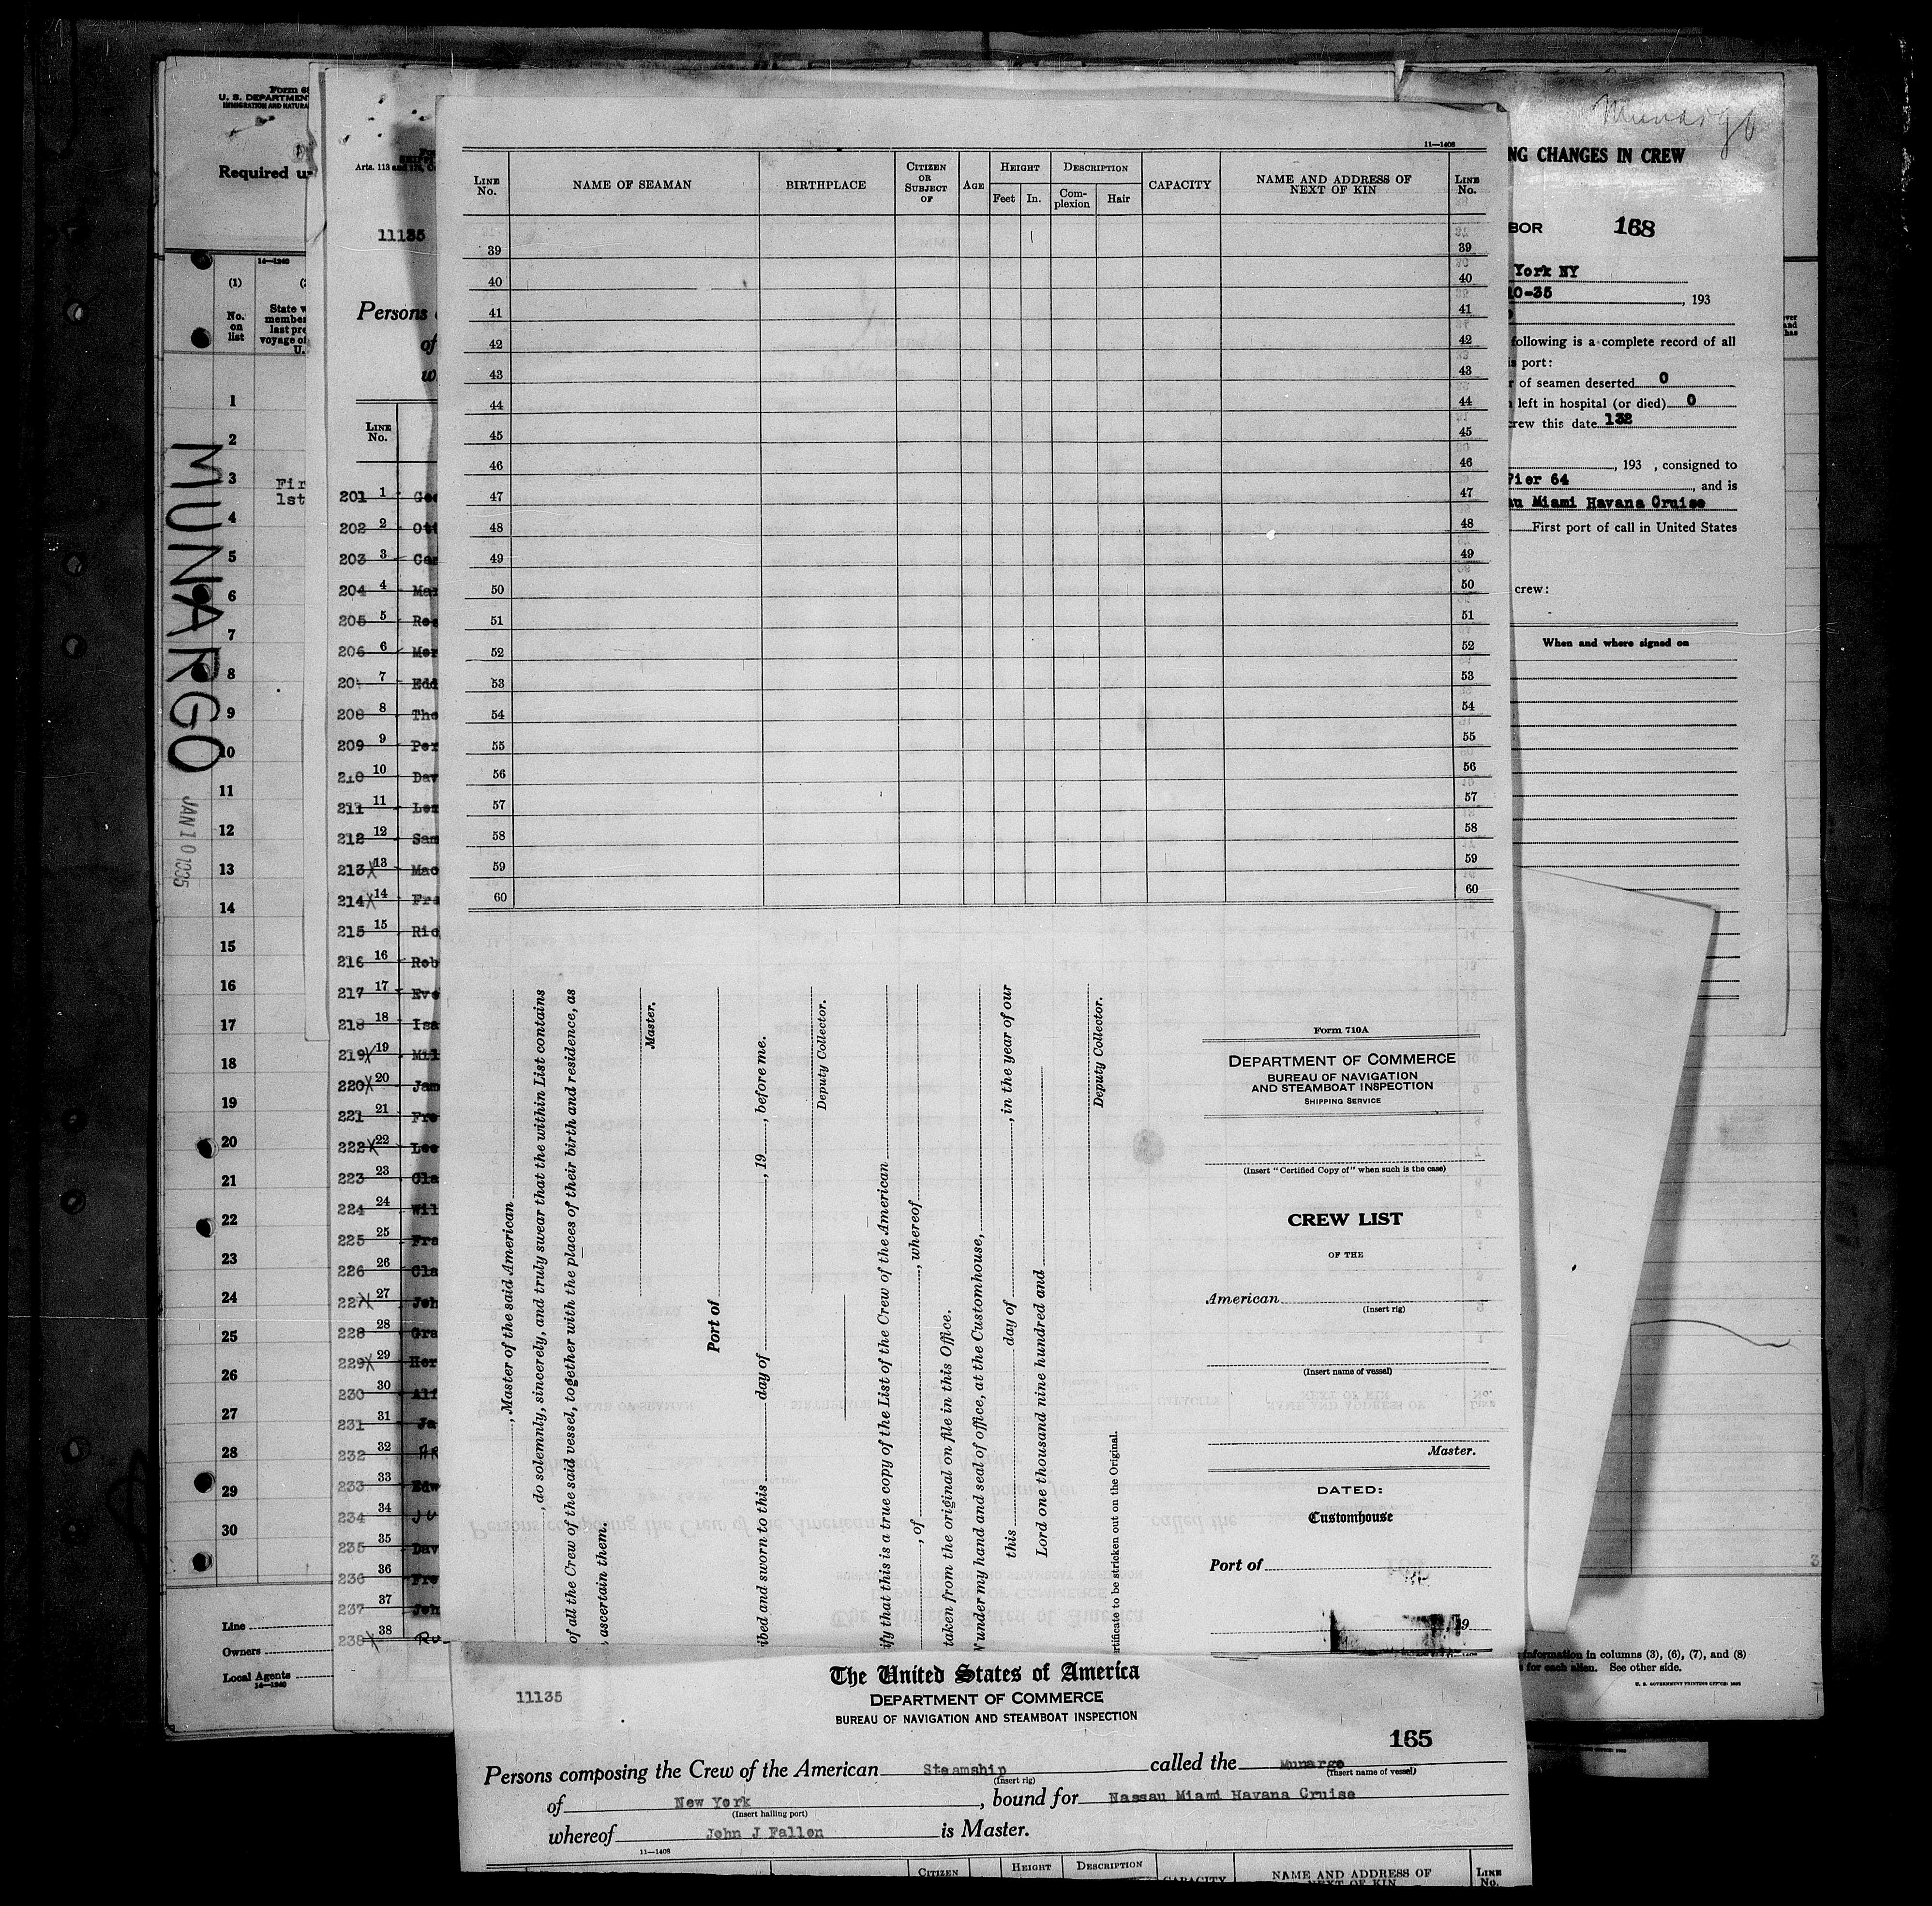 Form 68
U. S. DEPARTMENT
IMMIGRATION AND NATURA
Required u
14—1240
(1)
No.
on
list
State w
member
last pre
voyage of
U.
Fir
1st
1
2
3
4
5
6
7
8
9
10
11
12
13
14
15
16
17
18
19
20
21
22
23
24
25
26
27
28
29
30
MUNARGO
JAN 10 1935
Line
Owners
Local Agents
14—1240
Arts. 113 and 176, C
11135
Persons
of
w
LINE
No.
201 1 Geo
202 2 Ott
203 3 Car
204 4 Max
205 5 Ros
206 6 Mer
20 7 Edd
208 8 Tho
209 9 Per
210 10 Dav
211 11 Lex
212 12 Sam
213 X 13 Mac
214 X 14 Fra
215 15 Ric
216 16 Rob
217 17 Eve
218 18 Isa
219 X 19 Mil
220 X 20 Jam
221 21 Fre
222 X 22 Lee
223 23 Cla
224 24 Wil
225 25 Fra
226 26 Cla
227 X 27 Joh
228 28 Gra
229 X 29 Her
230 30 Alf
231 31 Ja
232 32
233 33 Edw
234 34
235 35 Dav
236 36 Fre
237 37 Joh
238 X 38 Ru
11—1408
LINE No. NAME OF SEAMAN BIRTHPLACE CITIZEN OR SUBJECT OF AGE HEIGHT Feet In. DESCRIPTION Complexion Hair CAPACITY NAME AND ADDRESS OF NEXT OF KIN LINE No.
39 39
40 40
41 41
42 42
43 43
44 44
45 45
46 46
47 47
48 48
49 49
50 50
51 51
52 52
53 53
54 54
55 55
56 56
57 57
58 58
59 59
60 60
, Master of the said American
, do solemnly, sincerely, and truly swear that the within List contains
of all the Crew of the said vessel, together with the places of their birth and residence, as
ascertain them.
Master.
Port of
ibed and sworn to this day of , 19 , before me.
Deputy Collector.
ify that this is a true copy of the List of the Crew of the American
, of , whereof
taken from the original on file in this Office.
under my hand and seal of office, at the Customhouse,
this day of , in the year of our
Lord one thousand nine hundred and
Deputy Collector.
rtificate to be stricken out on the Original.
Form 710A
DEPARTMENT OF COMMERCE
BUREAU OF NAVIGATION
AND STEAMBOAT INSPECTION
SHIPPING SERVICE
(Insert "Certified Copy of" when such is the case)
CREW LIST
OF THE
American
(Insert rig)
(Insert name of vessel)
Master.
DATED:
Customhouse
Port of
19
11135
The United States of America
DEPARTMENT OF COMMERCE
BUREAU OF NAVIGATION AND STEAMBOAT INSPECTION
165
Persons composing the Crew of the American Steamship called the Munargo
(Insert rig) (Insert name of vessel)
of New York , bound for Nassau Miami Havana Cruise
(Insert hailing port)
whereof John J Fallon is Master.
11—1408
CITIZEN HEIGHT DESCRIPTION CAPACITY NAME AND ADDRESS OF NEXT OF KIN LINE No.
Munargo
NG CHANGES IN CREW
BOR 168
York NY
10-35 , 193
following is a complete record of all
s port:
r of seamen deserted 0
left in hospital (or died) 0
rew this date 132
, 193 , consigned to
Pier 64 , and is
au Miami Havana Cruise
First port of call in United States
crew:
When and where signed on
information in columns (3), (6), (7), and (8)
for each alien. See other side.
U. S. GOVERNMENT PRINTING OFFICE